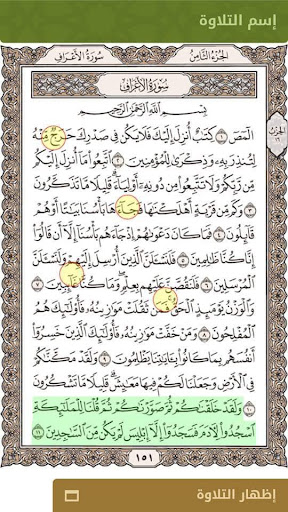 إسم التلاوة
سُورَةُ الأَعْرَافِ الجُزْءُ الثَّامِنُ
سُورَةُ الأَعْرَافِ
بِسْمِ اللَّهِ الرَّحْمَٰنِ الرَّحِيمِ
الٓمٓصٓ ١ كِتَٰبٌ أُنزِلَ إِلَيْكَ فَلَا يَكُن فِي صَدْرِكَ حَرَجٌ مِّنْهُ
لِتُنذِرَ بِهِ وَذِكْرَىٰ لِلْمُؤْمِنِينَ ٢ ٱتَّبِعُوا۟ مَآ أُنزِلَ إِلَيْكُم
مِّن رَّبِّكُمْ وَلَا تَتَّبِعُوا۟ مِن دُونِهِۦٓ أَوْلِيَآءَ ۗ قَلِيلًا مَّا تَذَكَّرُونَ
٣ وَكَم مِّن قَرْيَةٍ أَهْلَكْنَٰهَا فَجَآءَهَا بَأْسُنَا بَيَٰتًا أَوْ هُمْ
قَآئِلُونَ ٤ فَمَا كَانَ دَعْوَىٰهُمْ إِذْ جَآءَهُم بَأْسُنَآ إِلَّآ أَن قَالُوٓا۟
إِنَّا كُنَّا ظَٰلِمِينَ ٥ فَلَنَسْـَٔلَنَّ ٱلَّذِينَ أُرْسِلَ إِلَيْهِمْ وَلَنَسْـَٔلَنَّ
ٱلْمُرْسَلِينَ ٦ فَلَنَقُصَّنَّ عَلَيْهِم بِعِلْمٍ ۖ وَمَا كُنَّا غَآئِبِينَ ٧
وَٱلْوَزْنُ يَوْمَئِذٍ ٱلْحَقُّ ۚ فَمَن ثَقُلَتْ مَوَٰزِينُهُۥ فَأُو۟لَٰٓئِكَ هُمُ
ٱلْمُفْلِحُونَ ٨ وَمَنْ خَفَّتْ مَوَٰزِينُهُۥ فَأُو۟لَٰٓئِكَ ٱلَّذِينَ خَسِرُوٓا۟
أَنفُسَهُم بِمَا كَانُوا۟ بِـَٔايَٰتِنَا يَظْلِمُونَ ٩ وَلَقَدْ مَكَّنَّٰكُمْ
فِي ٱلْأَرْضِ وَجَعَلْنَا لَكُمْ فِيهَا مَعَٰيِشَ ۗ قَلِيلًا مَّا تَشْكُرُونَ
١٠ وَلَقَدْ خَلَقْنَٰكُمْ ثُمَّ صَوَّرْنَٰكُمْ ثُمَّ قُلْنَا لِلْمَلَٰٓئِكَةِ
ٱسْجُدُوا۟ لِـَٔادَمَ فَسَجَدُوٓا۟ إِلَّآ إِبْلِيسَ لَمْ يَكُن مِّنَ ٱلسَّٰجِدِينَ ١١
١٥١
إظهار التلاوة